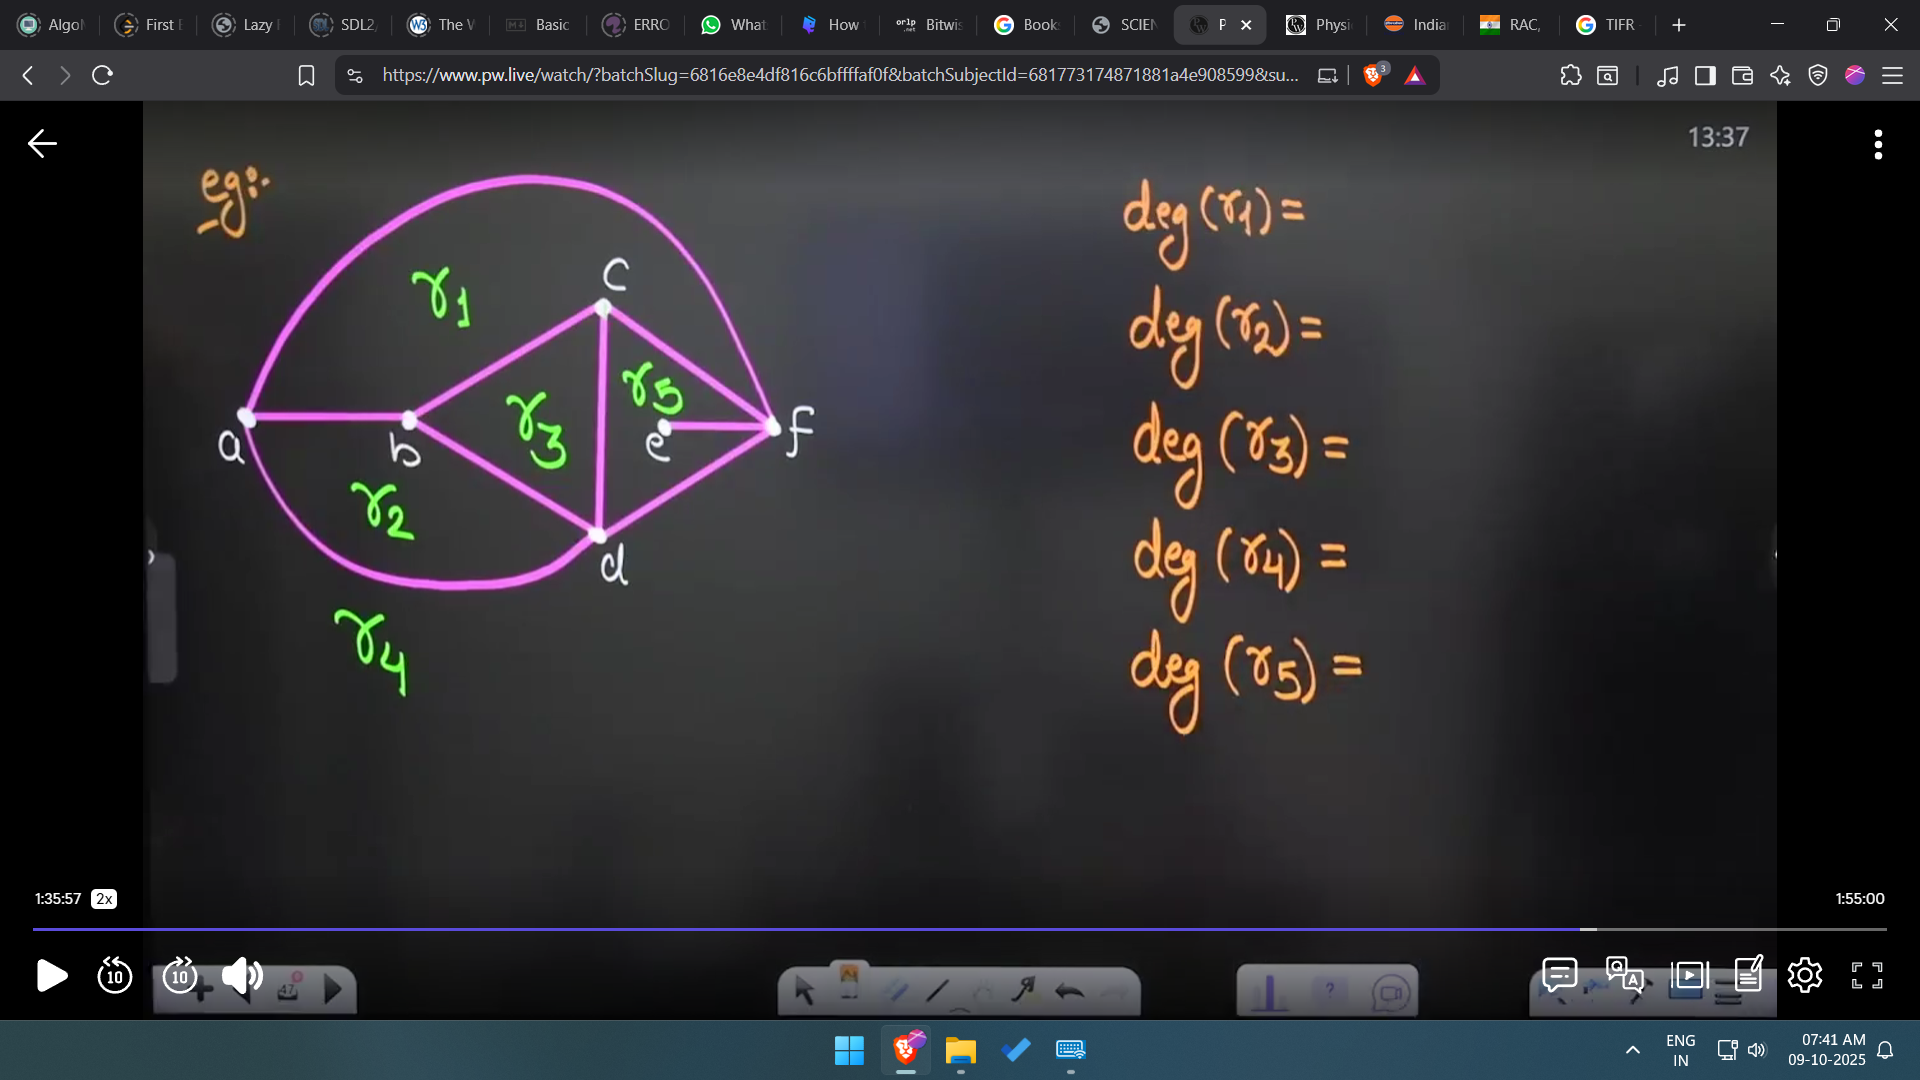 AlgoM
First E
Lazy
SDL2,
The W
Basic
ERRO
What
How
Bitwis
Book
SCIEN
P
Physi
India
RAC,
TIFR
https://www.pw.live/watch/?batchSlug=6816e8e4df816c6bffffaf0f&batchSubjectId=681773174871881a4e908599&su...
3
13:37
eg:-
r1
c
r5
r3
a
b
e
f
r2
d
r4
deg (r1) =
deg (r2) =
deg (r3) =
deg (r4) =
deg (r5) =
1:35:57 2x
1:55:00
10
10
47
ENG
IN
07:41 AM
09-10-2025